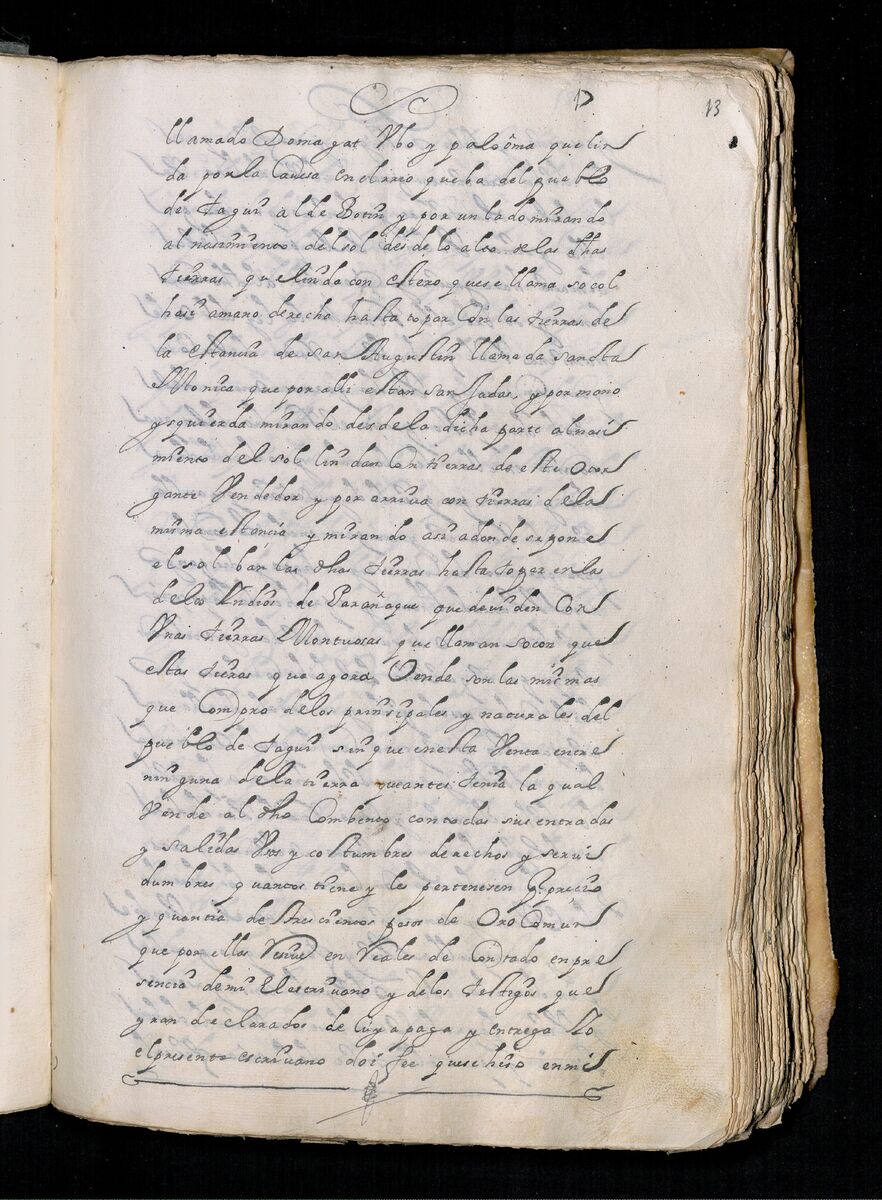 13
llamado Domagat Vbo y palooma que lin
da por la Cauesa en el rrio que ba del pueblo
de Taguii al de Botin y por un lado mirando
al nasimiento del sol desde lo alto de las dhas
tierras que linda con estero que se llama socol
hasia mano derecha hasta topar Con las tierras de
la estancia de san Augustin llamada sancta
Monica que por alli estan sanjadas, y por mano
ysquierda mirando desde la dicha parte al nasi
miento del sol lindan Con tierras de este Otor
gante Vendedor y por arriua con tierras de la
misma estancia y mirando asia donde se pone
el sol ban las dhas tierras hasta topar en las
de los Yndios de Parañaque que deuiden Con
Vnas tierras Montuosas que llaman socon que
estas tierras que agora Vende son las mismas
que Compro de los prinsipales y naturales del
pueblo de taguii sin que en esta Venta entre
ninguna de la tierra que antes tenia la qual
Vende al dho Combento con todas sus entradas
y salidas Vsos y costumbres derechos y serui
dumbres quantos tiene y les pertenesen Por presio
y quantia de tres cientos pesos de Oro Comun
que por ellas Resiuio en Reales de Contado en pre
sencia de mi El escriuano y de los Testigos que
yran declarados de cuya paga y entrega Yo
el presente escriuano doi fee que se hiso en mi